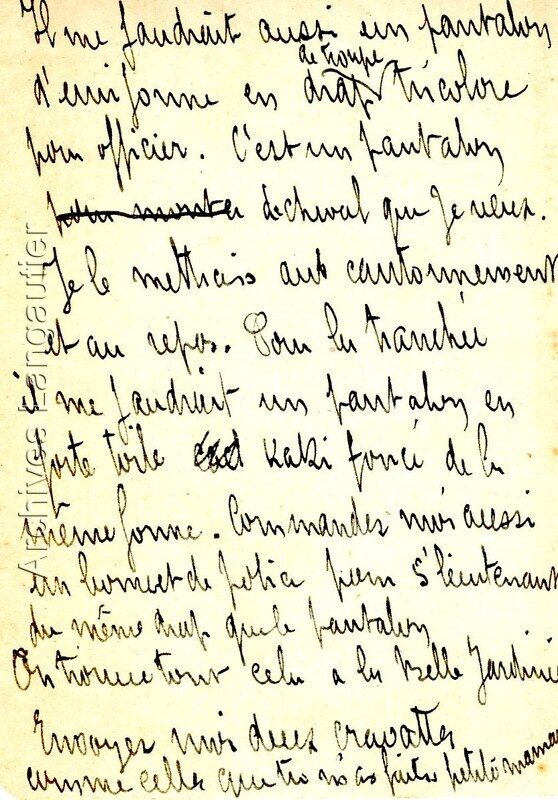 Il me faudrait aussi un pantalon
d'uniforme en drap de troupe tricolore
pour officier. C'est un pantalon
pour monter de cheval que je veux.
Je le mettrais aux cantonnement
et au repos. Pour la tranchée
il me faudrait un pantalon en
forte toile kaki foncé de la
même forme. Commandez moi aussi
un bonnet de police pour s/lieutenant
du même drap que le pantalon
On trouve tout cela a la Belle Jardinière
Envoyez moi deux cravattes
comme celle que tu m'as faite petite maman
Archives Langautier